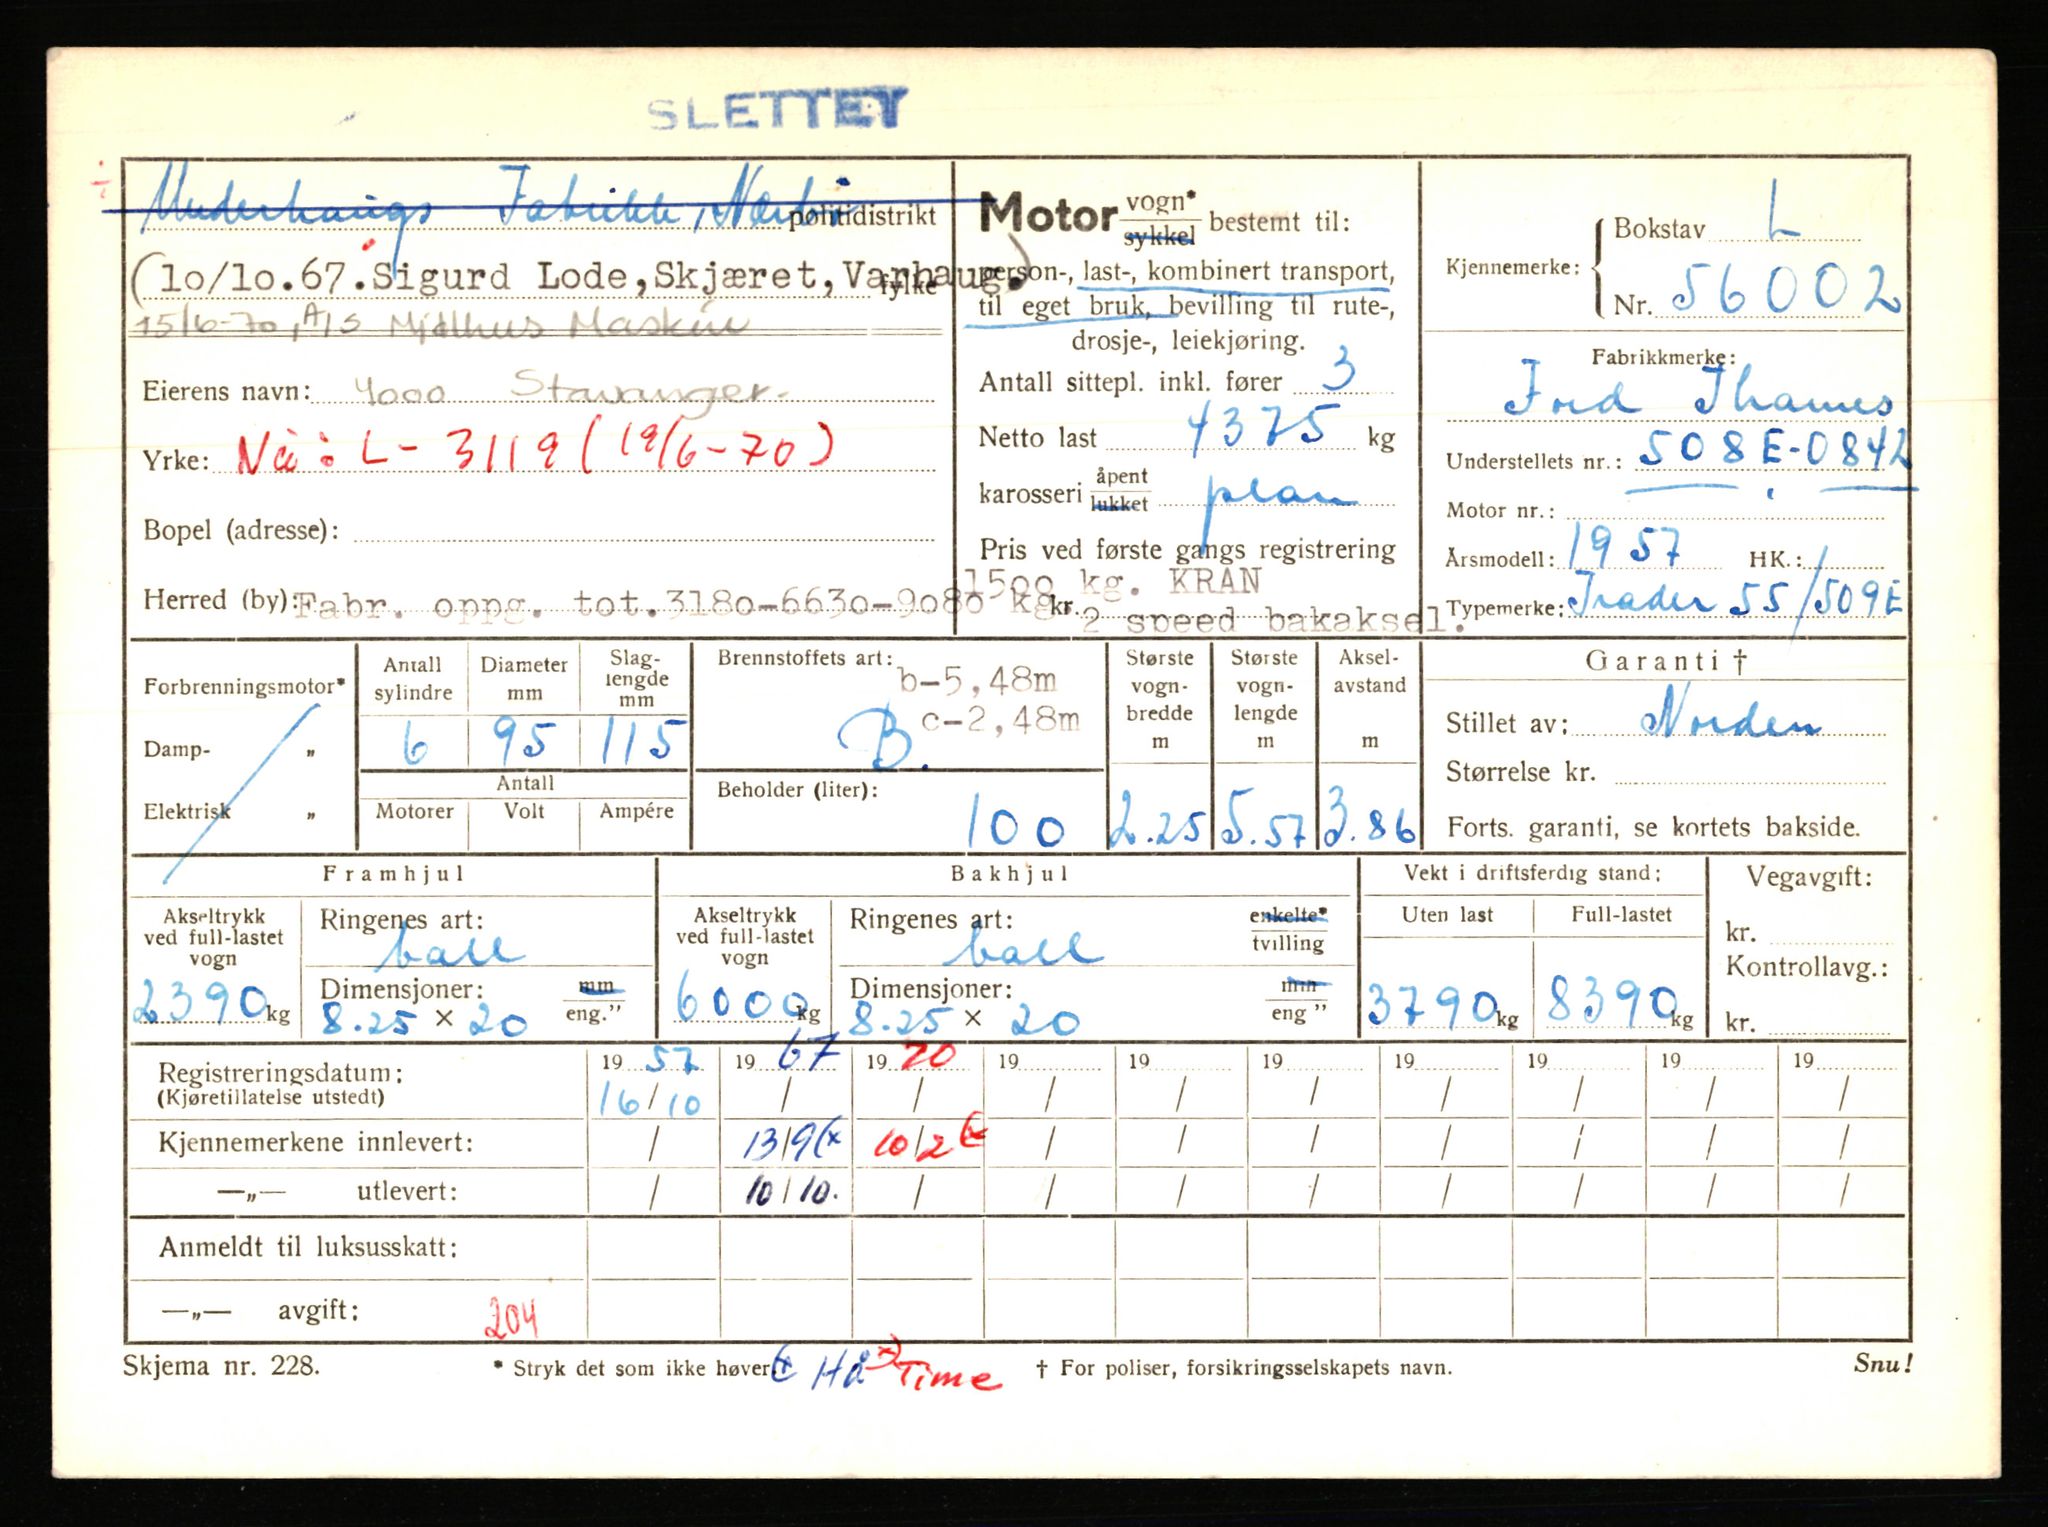 SLETTET
Fabrikk, Nærbø politidistrikt
(10/10.67. Sigurd Lode, Skjæret, Varhaug.) fylke
15/6-70, A/S Mjølhus Maskin
Eierens navn: 4000 Stavanger.
Yrke: Nå: L- 3119 (19/6-70)
Bopel (adresse):
Herred (by): Fabr. oppg. tot. 3180-6630-9080 kg
Motor vogn* sykkel bestemt til:
person-, last-, kombinert transport,
til eget bruk, bevilling til rute-,
drosje-, leiekjøring.
Antall sittepl. inkl. fører 3
Netto last 4375 kg
karosseri åpent lukket plan
Pris ved første gangs registrering
1500 kg. KRAN
kr. 2 speed bakaksel.
Kjennemerke: Bokstav L
Nr. 56002
Fabrikkmerke:
Ford Thames
Understellets nr.: 508E-0842
Motor nr.:
Årsmodell: 1957 HK.:
Typemerke: Trader 55/509E
Forbrenningsmotor*
Damp- „
Elektrisk „
Antall sylindre 6
Diameter mm 95
Slaglengde mm 115
Antall
Motorer Volt Ampére
Brennstoffets art: B.
b-5,48m
c-2,48m
Beholder (liter): 100
Største vognbredde m 2.25
Største vognlengde m 5.57
Akselavstand m 3.86
Garanti †
Stillet av: Norden
Størrelse kr.
Forts. garanti, se kortets bakside.
Framhjul
Akseltrykk ved full-lastet vogn 2390 kg
Ringenes art: ball
Dimensjoner: mm eng.”
8.25 × 20
Bakhjul
Akseltrykk ved full-lastet vogn 6000 kg
Ringenes art: enkelte* tvilling
ball
Dimensjoner: mm eng ”
8.25 × 20
Vekt i driftsferdig stand:
Uten last 3790 kg
Full-lastet 8390 kg
Vegavgift:
kr.
Kontrollavg.:
kr.
Registreringsdatum: 1957 1967 1970 19 19 19 19 19 19 19
(Kjøretillatelse utstedt) 16/10 / / / / / / / / /
Kjennemerkene innlevert: / 13/9 (x 10/2 (x / / / / / / /
—„— utlevert: / 10/10. / / / / / / / /
Anmeldt til luksusskatt:
—„— avgift: 204
Skjema nr. 228. * Stryk det som ikke høver. (x Hå x) Time † For poliser, forsikringsselskapets navn. Snu!